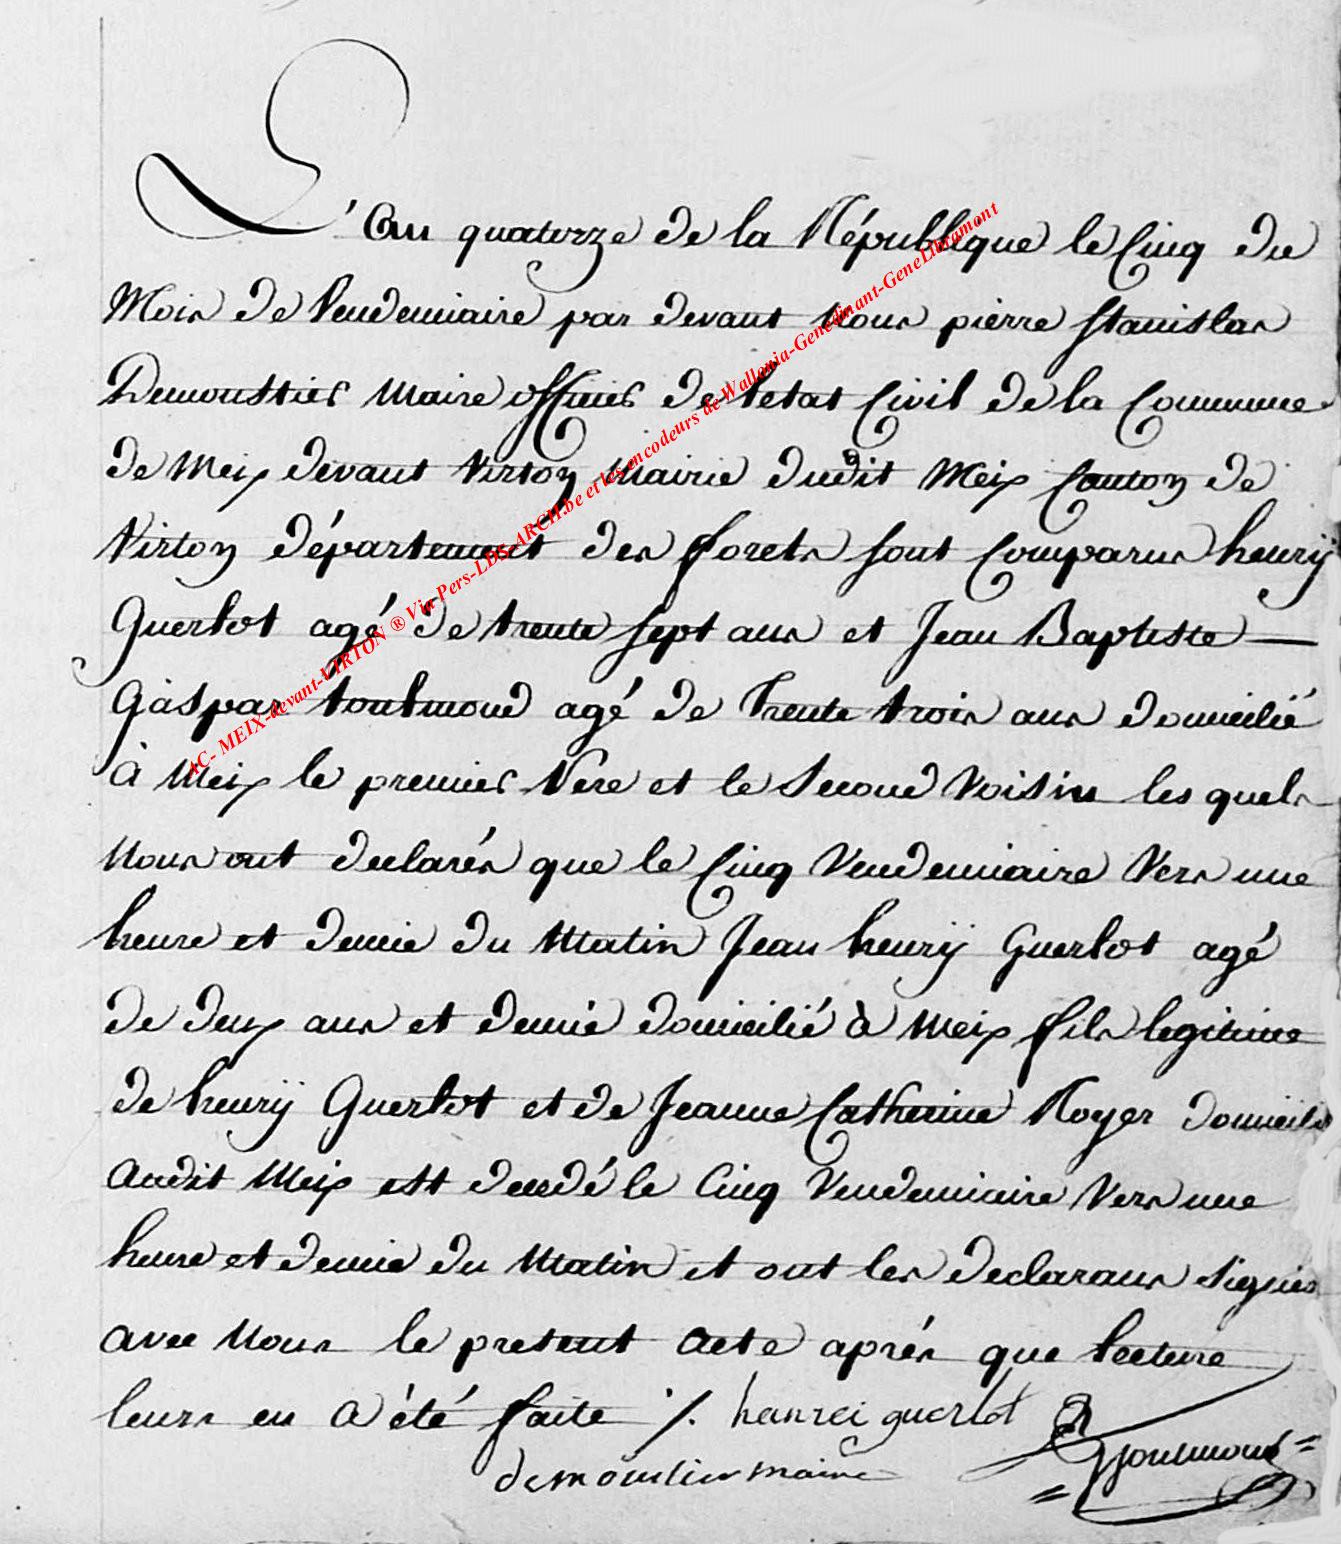 L'an quatorze de la République le Cinq du
Mois de Vendemiaire par devant Nous pierre Stanislas
Demousties Maire officier de l'etat Civil de la Commune
de Meix devant Virton Mairie dudit Meix Canton de
Virton département des forets sont Comparus henrÿ
Guerlot agé de trente sept ans et Jean Baptiste —
Gaspar toulmond agé de trente trois ans domicilié
à Meix le premier Pere et le Second Voisin les quels
Nous ont declarés que le Cinq Vendemiaire Vers une
heure et demie du Matin Jean henrÿ Guerlot agé
de deux ans et demie domicilié à Meix fils legitime
de henrÿ Guerlot et de Jeanne Catherine Royer domicilié
audit Meix est decedé le Cinq Vendemiaire Vers une
heure et demie du Matin et ont les declarans signés
avec Nous le present acte aprés que lecture
leurs en a été faite ·/. hanrei guerlot
demoustier maire
GJoulmond
AC- MEIX-devant-VIRTON ® Via Pers-LDS-ARCH.be et les encodeurs de Wallonia-Genedinant-GeneLibramont